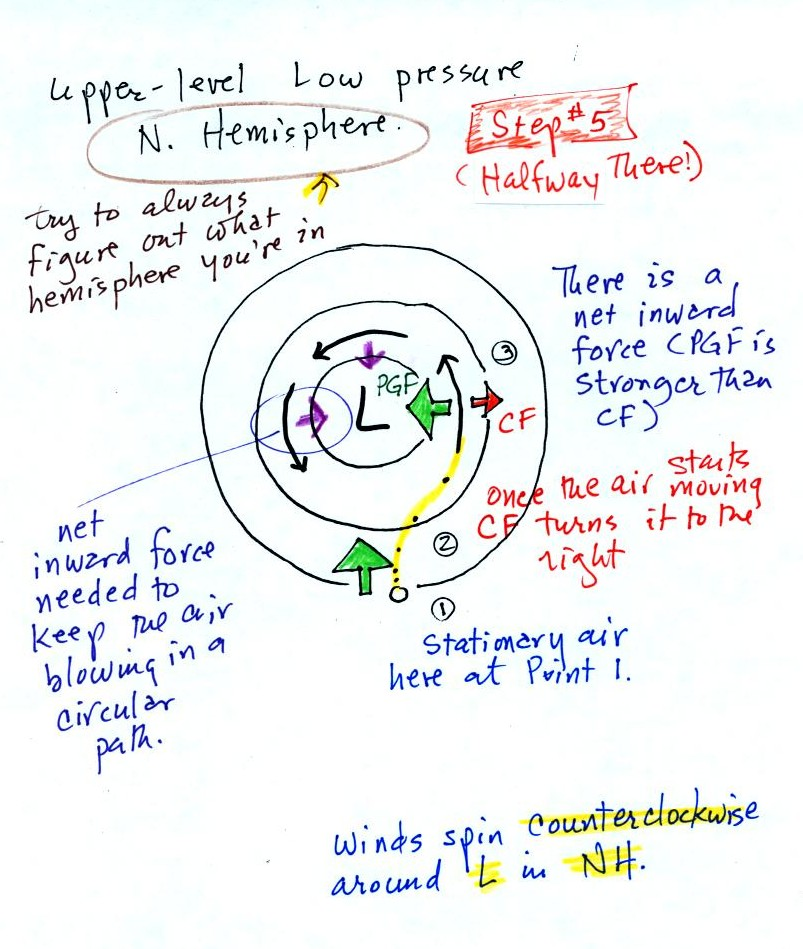 Upper-level Low pressure
N. Hemisphere.
Step #5
(Halfway There!)
try to always
figure out what
hemisphere you're in
There is a
net inward
force (PGF is
stronger than
CF)
③
PGF
L
CF
once the air starts moving
CF turns it to the
right
②
①
Stationary air
here at Point 1.
net
inward force
needed to
keep the air
blowing in a
circular
path.
Winds spin counterclockwise
around L in NH.